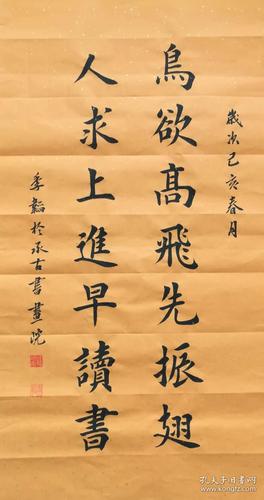 歲次己亥春月
鳥欲高飛先振翅
人求上進早讀書
季韜於承古書畫院
孔夫子旧书网
www.kongfz.com